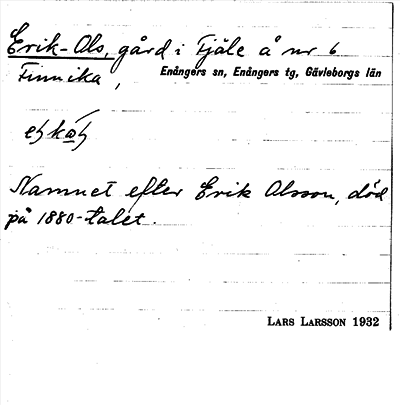 Erik-Ols, gård i Tjäle å nr 6
Finnika,
Enångers sn, Enångers tg, Gävleborgs län
Namnet efter Erik Olsson, död
på 1880-talet.
LARS LARSSON 1932